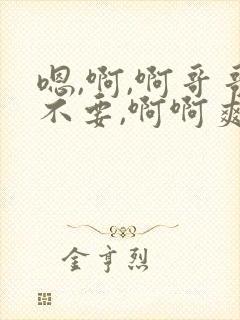 嗯,啊,啊哥哥
不要,啊啊爽
金亨烈